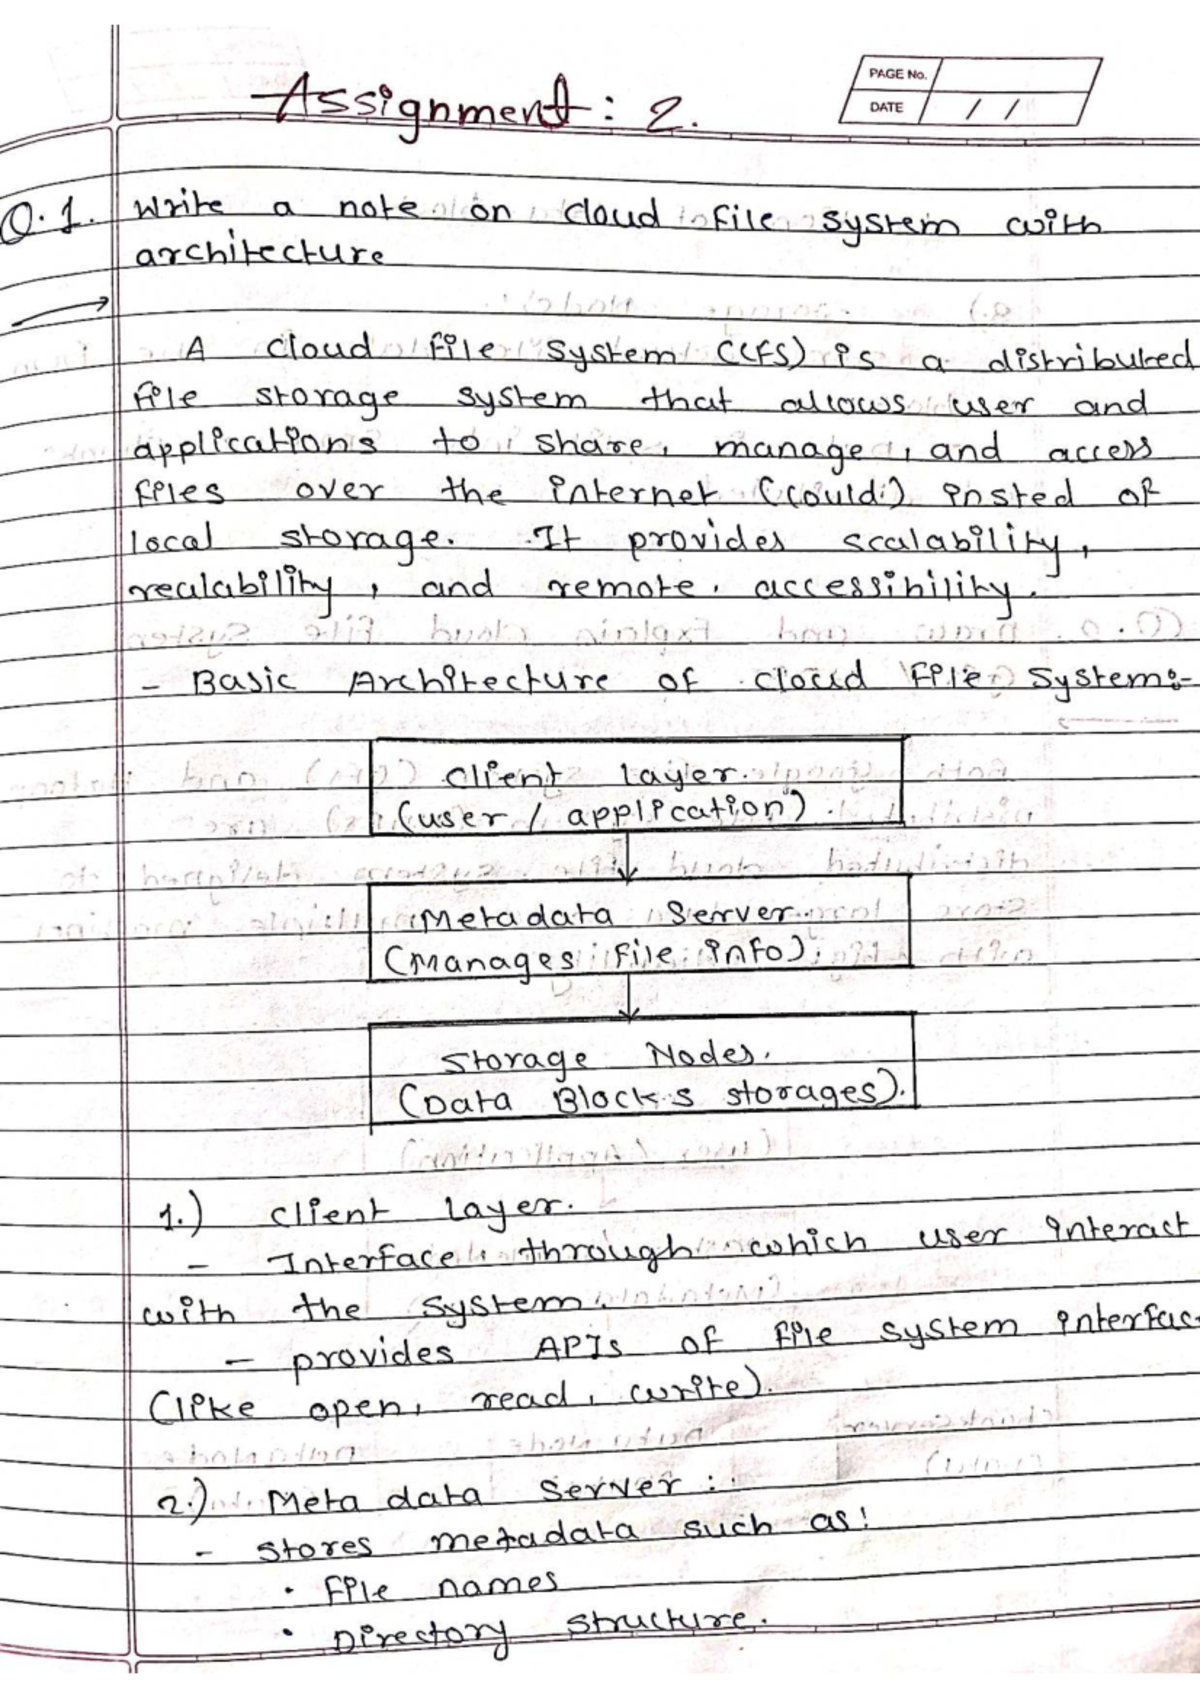 Assignment : 2.
PAGE No.
DATE / /
Q.1. Write a note on cloud file system with
architecture
A cloud file System (CFS) is a distributed
file storage system that allows user and
applications to share, manage, and access
files over the internet (could) insted of
local storage. It provides scalability,
realability, and remote accessibility.
- Basic Architecture of cloud File System:-
Client layer.
(user / application).
Metadata Server.
(Manages file info).
Storage Nodes.
(Data Blocks storages).
1.) Client layer.
- Interface through which user interact
with the system.
- provides APIs of file system interfac
(like open, read, write).
2.) Meta data Server :
- Stores metadata such as:
• File names
• Directory structure.